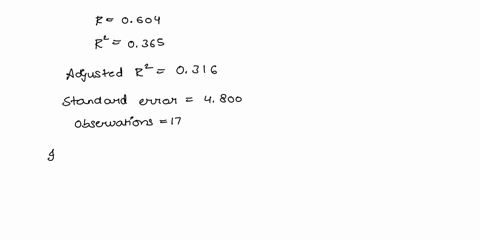 R = 0.604
R² = 0.365
Adjusted R² = 0.316
Standard error = 4.800
Observations = 17